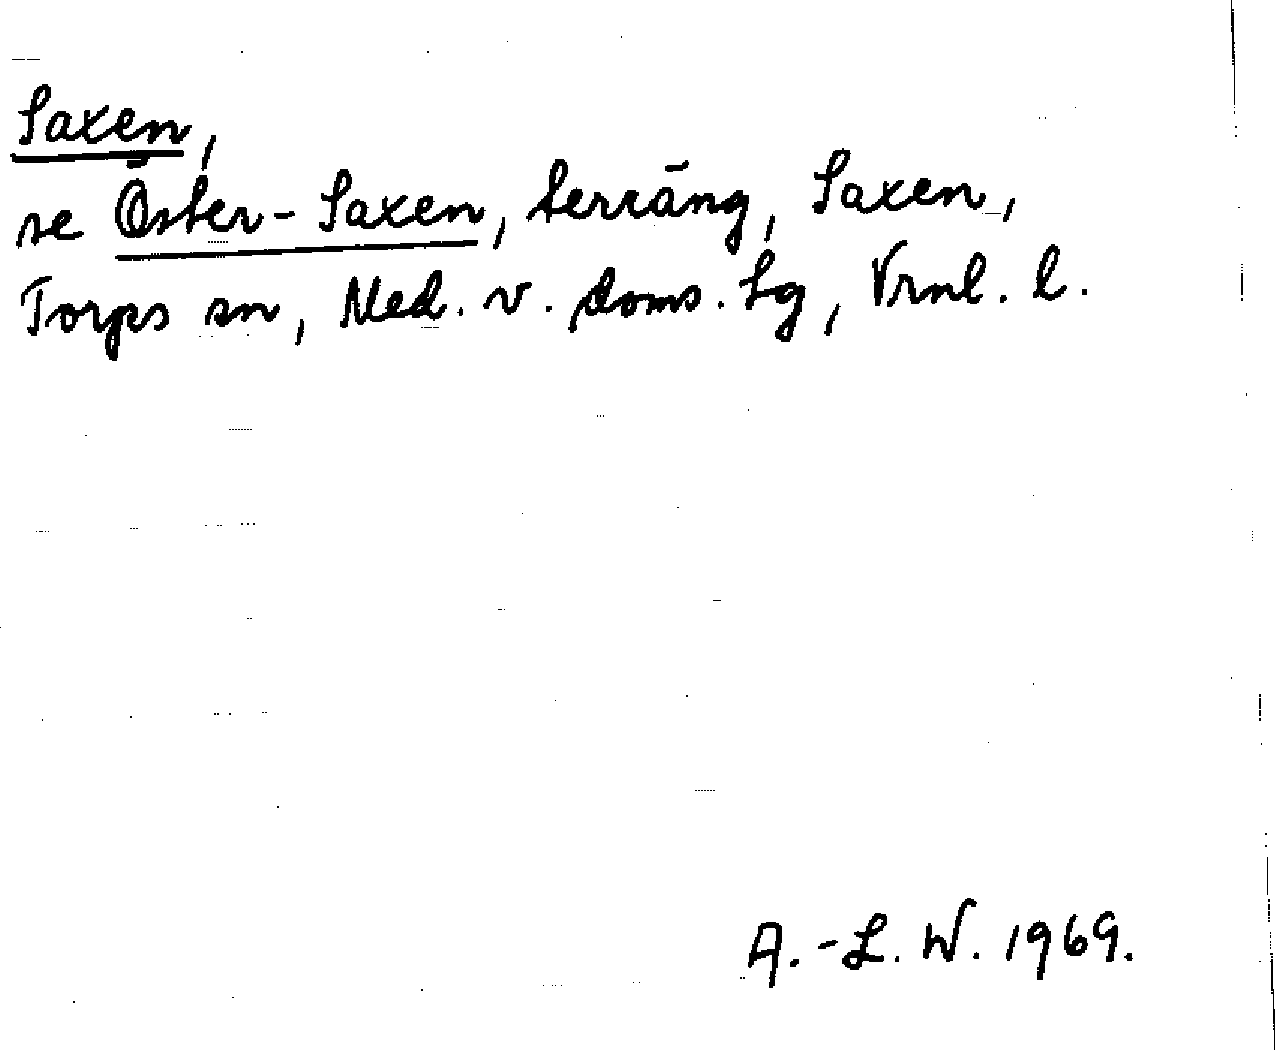 Saxen,
se Öster-Saxen, terräng, Saxen,
Torps sn, Med. v. doms. tg, Vrnl. l.
A.-L. W. 1969.